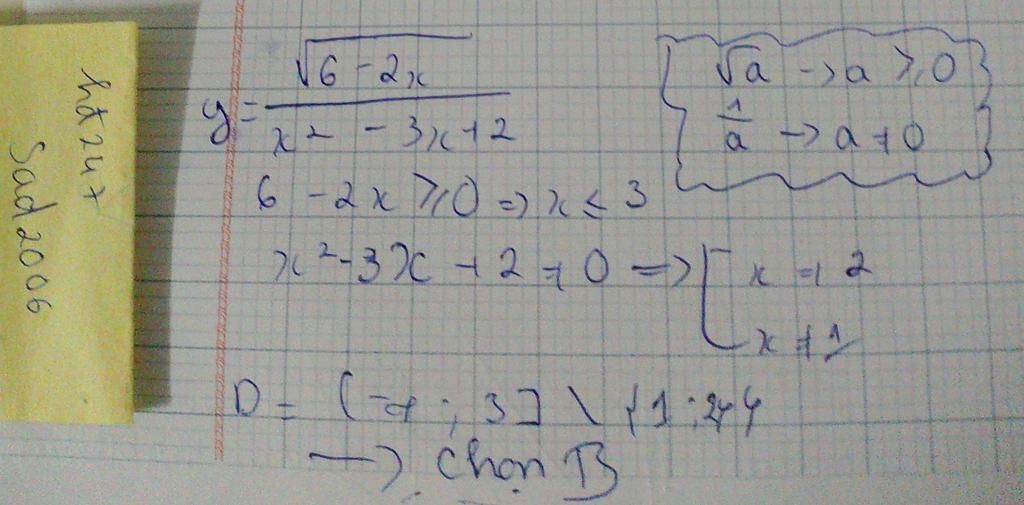 hđ247
Sad2006
y = √(6 - 2x) / (x² - 3x + 2)
√a → a ≥ 0
1/a → a ≠ 0
6 - 2x ≥ 0 => x ≤ 3
x² - 3x + 2 ≠ 0 => [ x ≠ 2
x ≠ 1
D = (-∞ ; 3] \ {1 ; 2}
→ chọn B